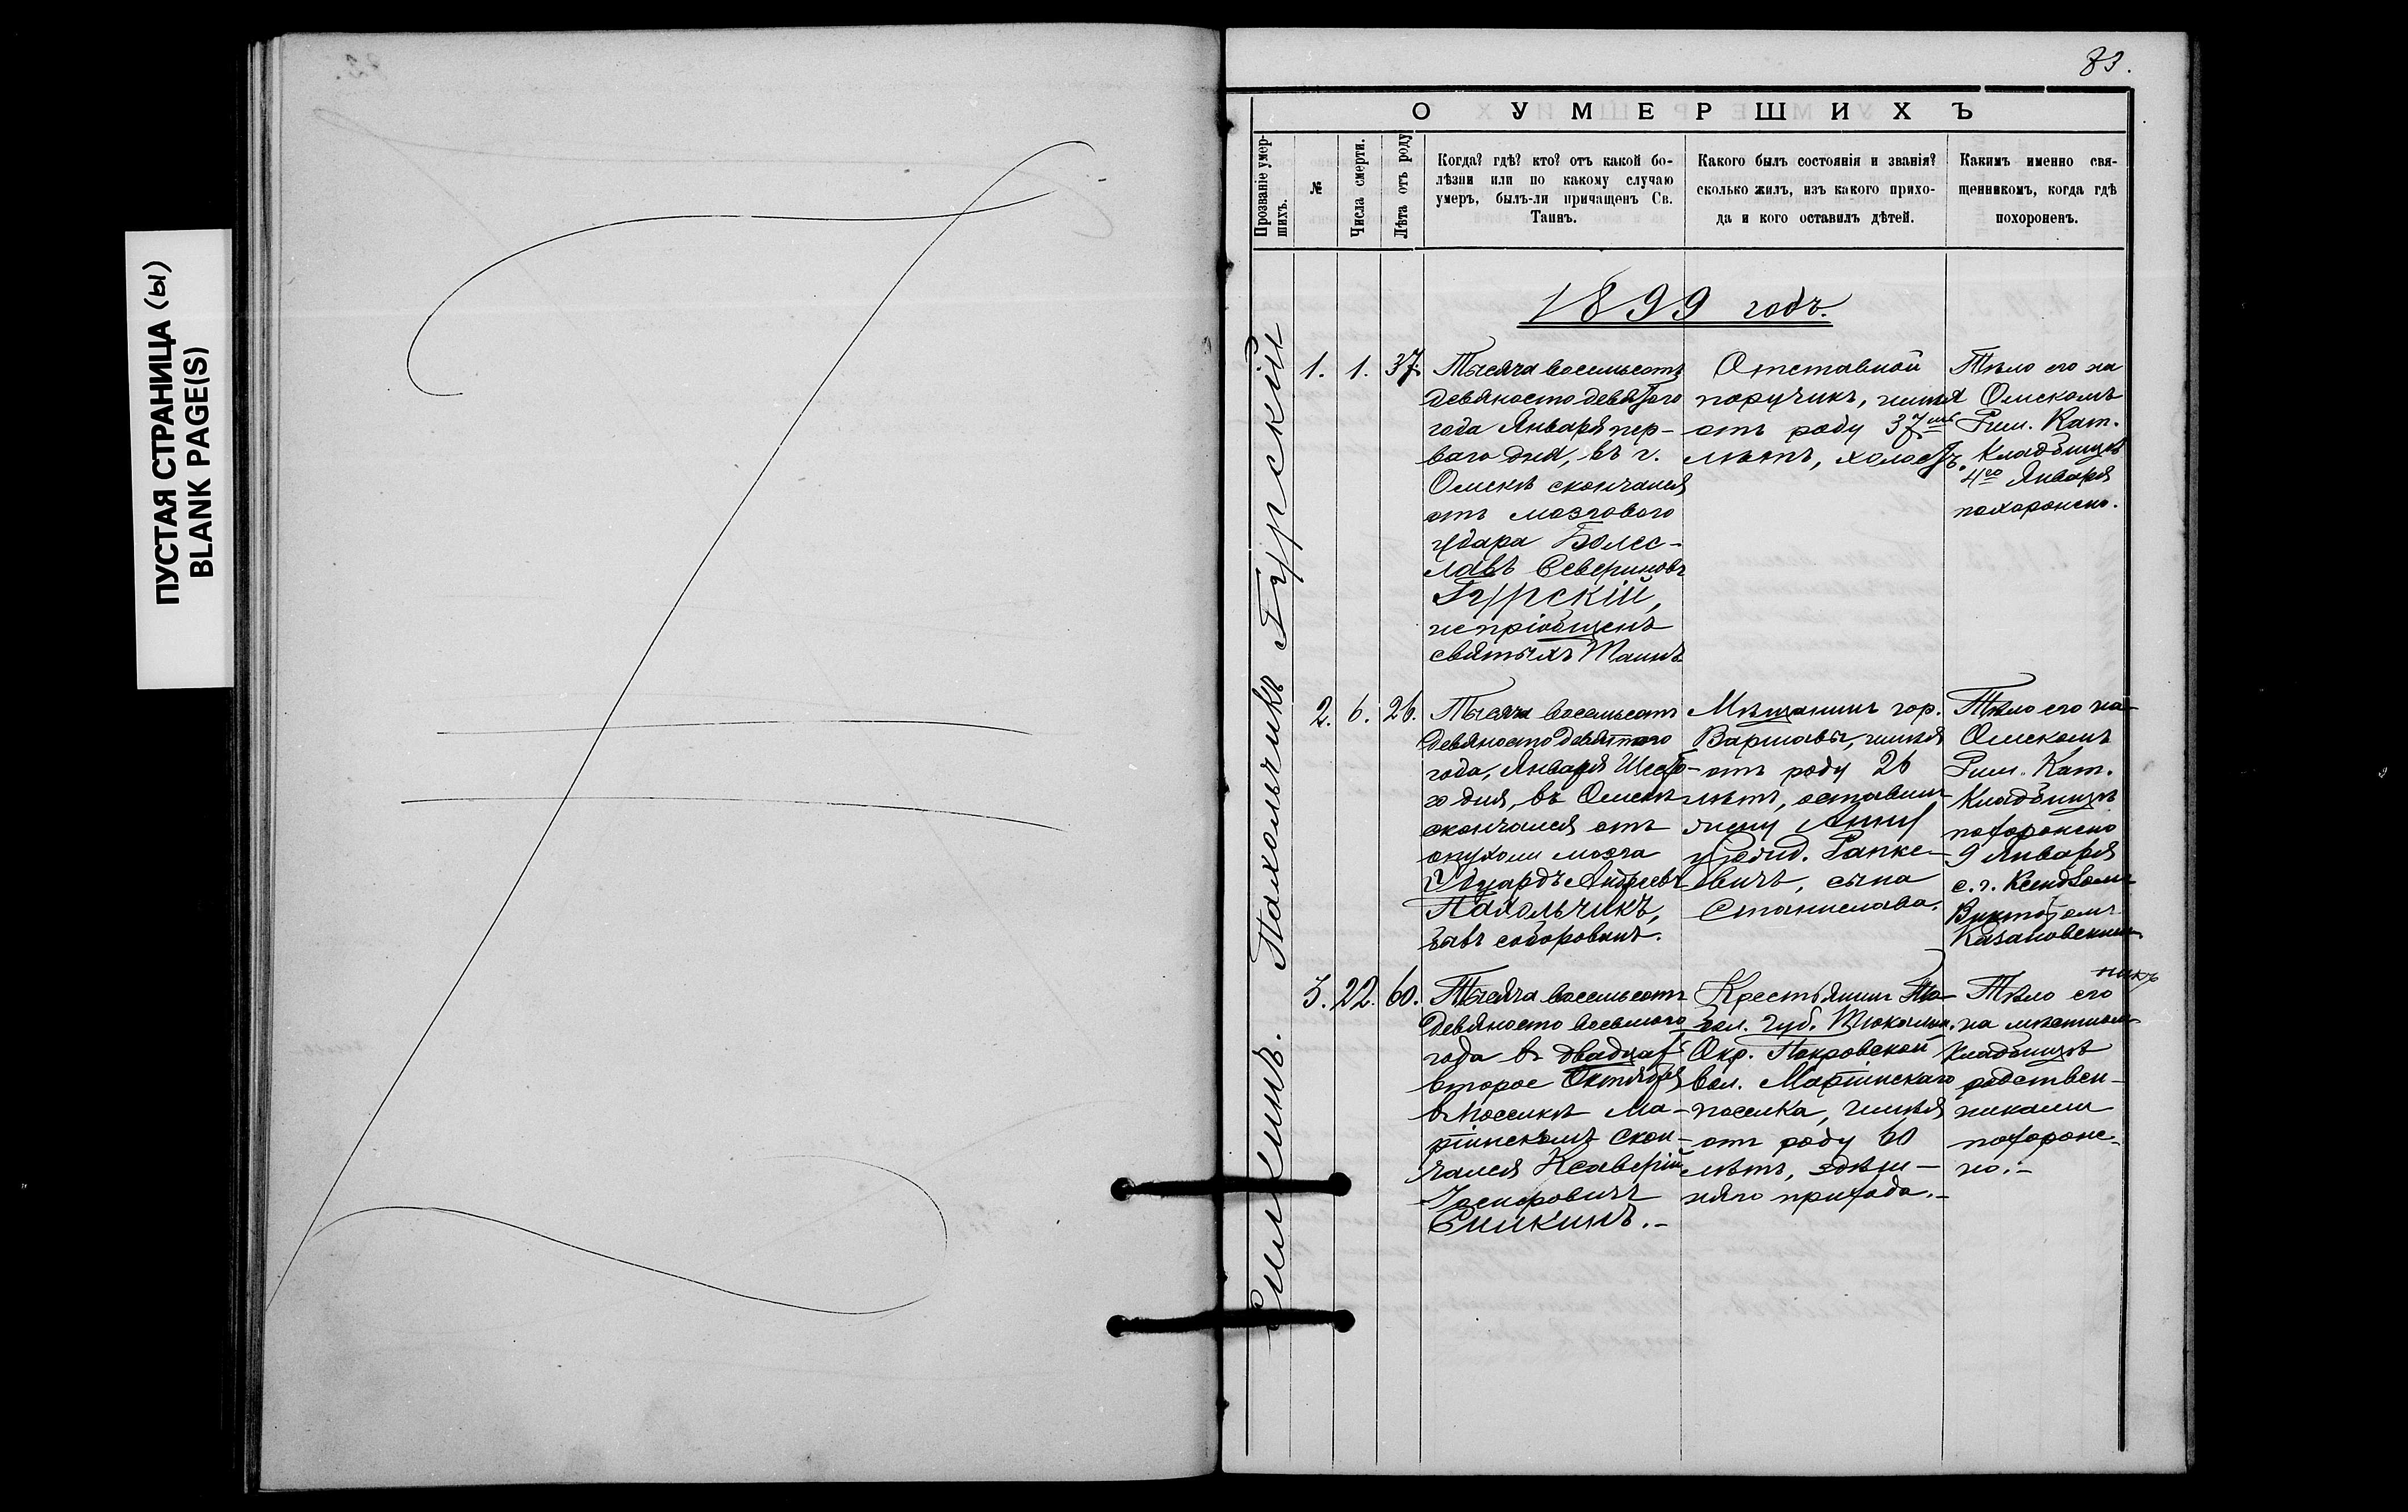 ПУСТАЯ СТРАНИЦА (ы)
BLANK PAGE(S)
83.
О УМЕРШИХЪ
Прозваніе умер-
шихъ.
№
Числа смерти.
Лѣта отъ роду
Когда? гдѣ? кто? отъ какой бо-
лѣзни или по какому случаю
умеръ, былъ-ли причащенъ Св.
Таинъ.
Какого былъ состоянія и званія?
сколько жилъ, изъ какого прихо-
да и кого оставилъ дѣтей.
Какимъ именно свя-
щенникомъ, когда гдѣ
похороненъ.
1899 годъ.
Гурскій
1.
1.
37.
Тысяча восемьсотъ
девяносто девятого
года Января пер-
ваго дня, въ г.
Омскѣ скончался
отъ мозгового
удара Болес-
лавъ Севериновъ
Гурскій,
непріобщенъ
святыхъ Таинъ
Отставной
поручикъ, имѣя
отъ роду 37
лѣтъ, холостъ.
Тѣло его на
Омскомъ
Рим. Кат.
Кладбищѣ
4го Января
похоронено.
Пахольчикъ
2.
6.
26.
Тысяча восемьсотъ
девяносто девятого
года, Января Шесто-
го дня, въ Омскѣ
скончался отъ
опухоли мозга
Эдуардъ Андреевъ
Пахольчикъ,
бывъ соборованъ.
Мѣщанинъ гор.
Варшавы, имѣя
отъ роду 26
лѣтъ, оставивъ
жену Анну
урожд. Рапке-
вичъ, сына
Станислава.
Тѣло его на
Омскомъ
Рим. Кат.
Кладбищѣ
похоронено
9 Января
с. г. Ксендзомъ
Викторомъ
Казановскимъ
Симкинъ.
3.
22.
60.
Тысяча восемьсотъ
девяносто восьмого
года въ двадцать
второе Октября
въ поселкѣ Ма-
ріинскомъ скон-
чался Ксаверій
Іосифовичъ
Симкинъ.-
Крестьянинъ То-
бол. губ. Тюкалин.
Окр. Покровской
вол. Маріинскаго
поселка, имѣя
отъ роду 60
лѣтъ, здѣш-
няго прихода.-
Тѣло его
на мѣстномъ
кладбищѣ
родствен-
никами
похороне-
но.-